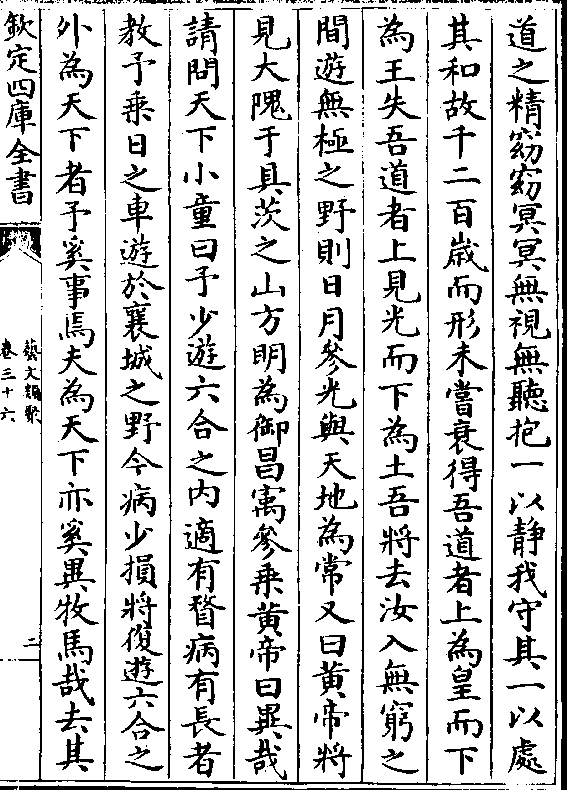 道之精窈窈冥冥無視無聽抱一以静我守其一以處
其和故千二百歲而形未嘗衰得吾道者上為皇而下
為王失吾道者上見光而下為土吾將去汝入無窮之
間遊無極之野則日月參光與天地為常又曰黃帝將
見大隗于具茨之山方明為御昌㝢參乗黃帝曰異哉
請問天下小童曰予少遊六合之内適有瞀病有長者
教予乗日之車遊於襄城之野今病少損將復遊六合之
外為天下者予奚事焉夫為天下亦奚異牧馬哉去其
欽定四庫全書
藝文類聚
卷三十六
三